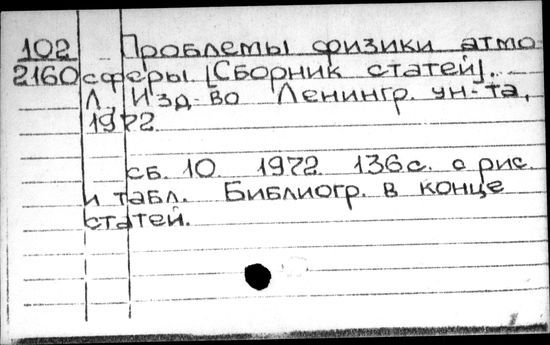 102 Проблемы физики атмо
2160 сферы [Сборник статей].
Л., Изд-во Ленингр. ун-та,
1972
сб. 10. 1972. 136с. с рис.
и табл. Библиогр. в конце
статей.